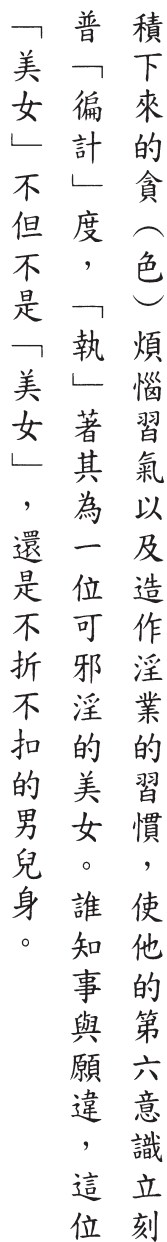 積下來的貪（色）煩惱習氣以及造作淫業的習慣，使他的第六意識立刻
普「徧計」度，「執」著其為一位可邪淫的美女。誰知事與願違，這位
「美女」不但不是「美女」，還是不折不扣的男兒身。